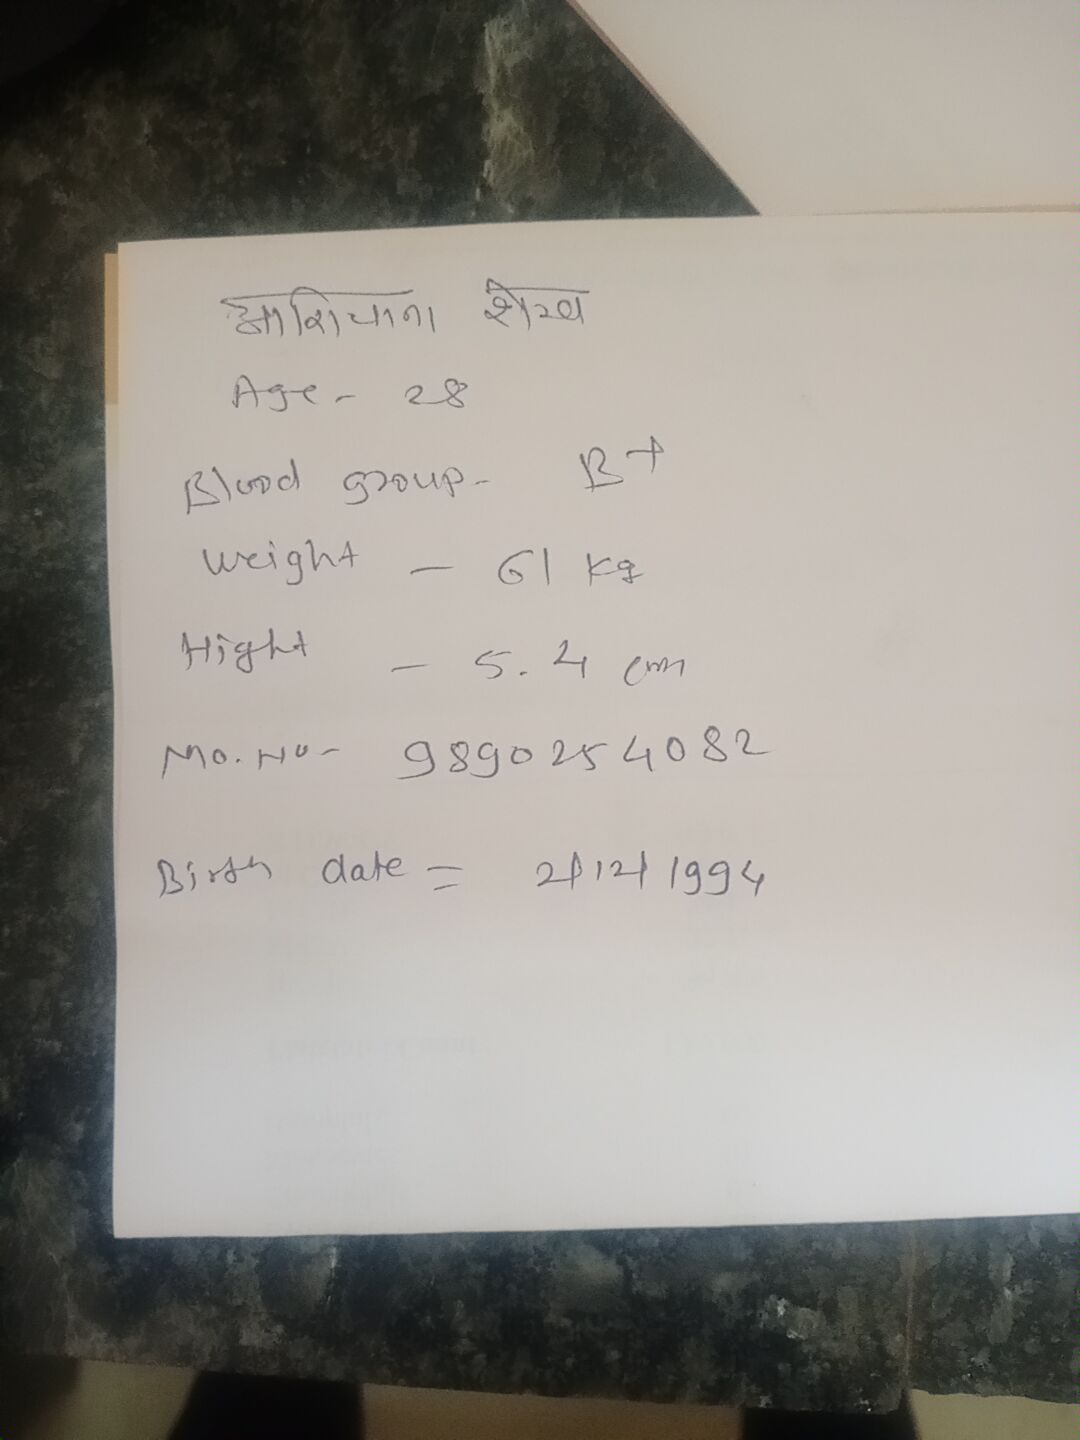 आशियाना शेख
Age - 28
Blood group - B+
Weight - 61 kg
Hight - 5.4 cm
Mo. No - 9890254082
Birth date = 2/12/1994